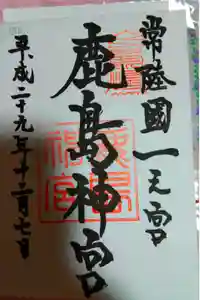 常陸國一之宮
鹿島神宮
平成二十九年十二月七日